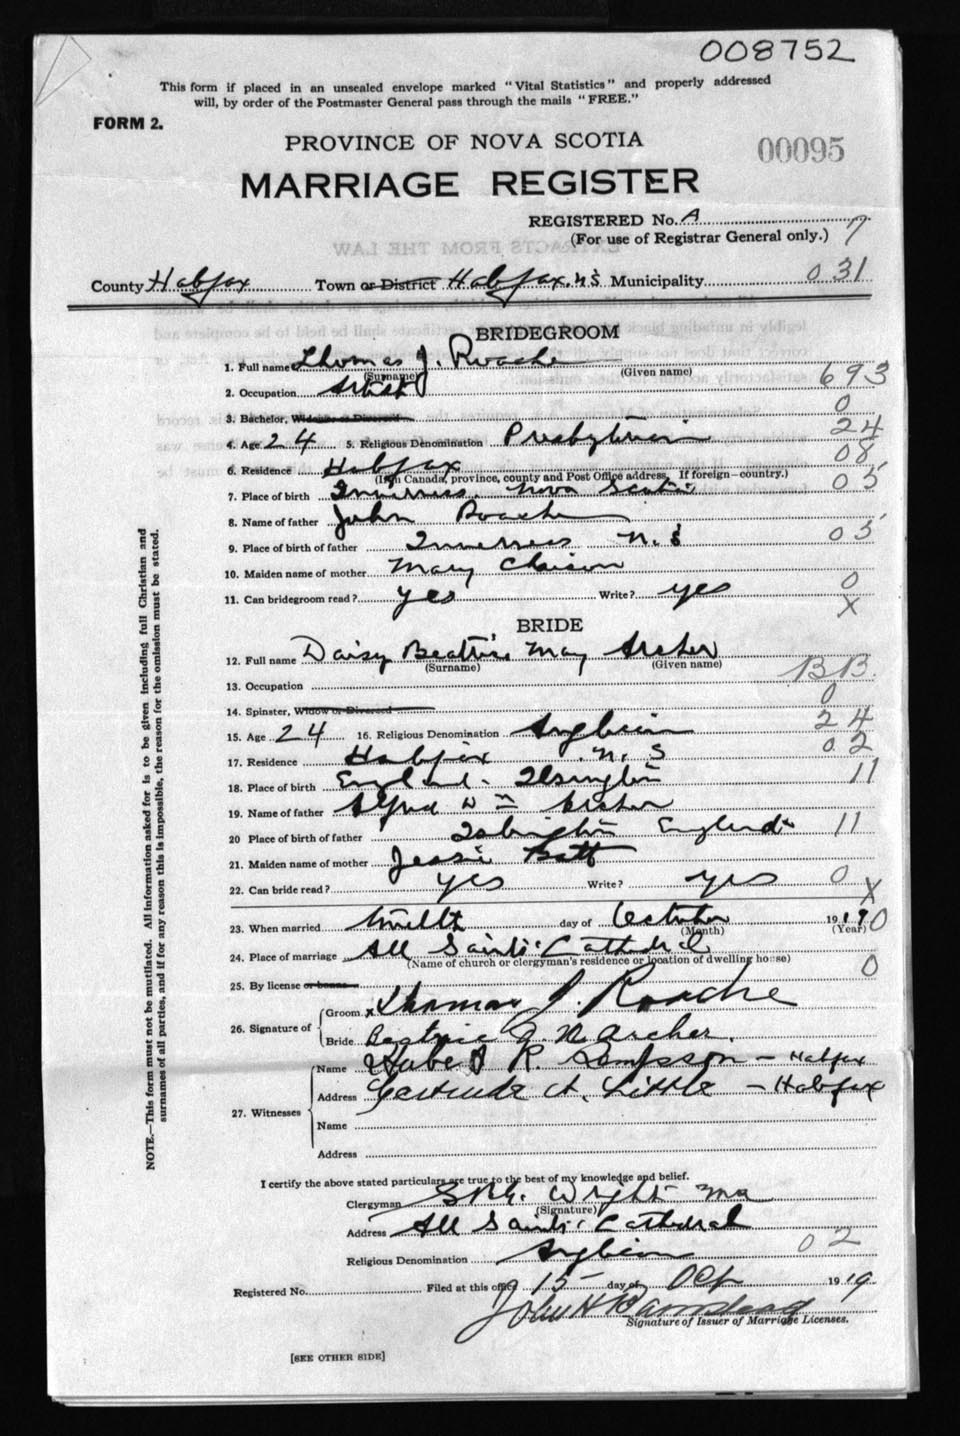 008752
This form if placed in an unsealed envelope marked "Vital Statistics" and properly addressed
will, by order of the Postmaster General pass through the mails "FREE."
FORM 2.
PROVINCE OF NOVA SCOTIA
00095
MARRIAGE REGISTER
REGISTERED No. A
(For use of Registrar General only.) 7
County Halifax Town or District Halifax. N S Municipality 031
BRIDEGROOM
1. Full name Thomas J. Roache
(Surname) (Given name)
2. Occupation Artist 693
3. Bachelor, Widower or Divorced 0
4. Age 24 5. Religious Denomination Presbyterian 24
6. Residence Halifax 08
(If in Canada, province, county and Post Office address. If foreign—country.)
7. Place of birth Inverness. Nova Scotia 05
8. Name of father John Roache
9. Place of birth of father Inverness N. S 05
10. Maiden name of mother Mary Chaison
11. Can bridegroom read? yes Write? yes 0
X
BRIDE
12. Full name Daisy Beatrice May Archer
(Surname) (Given name)
13. Occupation BB.
14. Spinster, Widow or Divorced 0
15. Age 24 16. Religious Denomination Anglican 24
17. Residence Halifax N. S 02
18. Place of birth England. Islington 11
19. Name of father Alfred Wm Archer
20 Place of birth of father Islington England 11
21. Maiden name of mother Jessie Batt
22. Can bride read? yes Write? yes 0
X
23. When married day of October 1919 0
(Month) (Year)
24. Place of marriage All Saints Cathedral
(Name of church or clergyman's residence or location of dwelling house)
0
25. By license or banns
26. Signature of Groom x Thomas J. Roache
Bride Beatrice Archer.
27. Witnesses Name Hubert R. Simpson - Halifax
Address Gertrude A. Little - Halifax
Name
Address
I certify the above stated particulars are true to the best of my knowledge and belief.
Clergyman Wright MA
(Signature)
Address All Saints Cathedral
Religious Denomination Anglican 02
Registered No. Filed at this office 15 day of Oct 1919
John H Barnstead
Signature of Issuer of Marriage Licenses.
[SEE OTHER SIDE]
NOTE.—This form must not be mutilated. All information asked for is to be given including full Christian and
surnames of all parties, and if for any reason this is impossible, the reason for the omission must be stated.